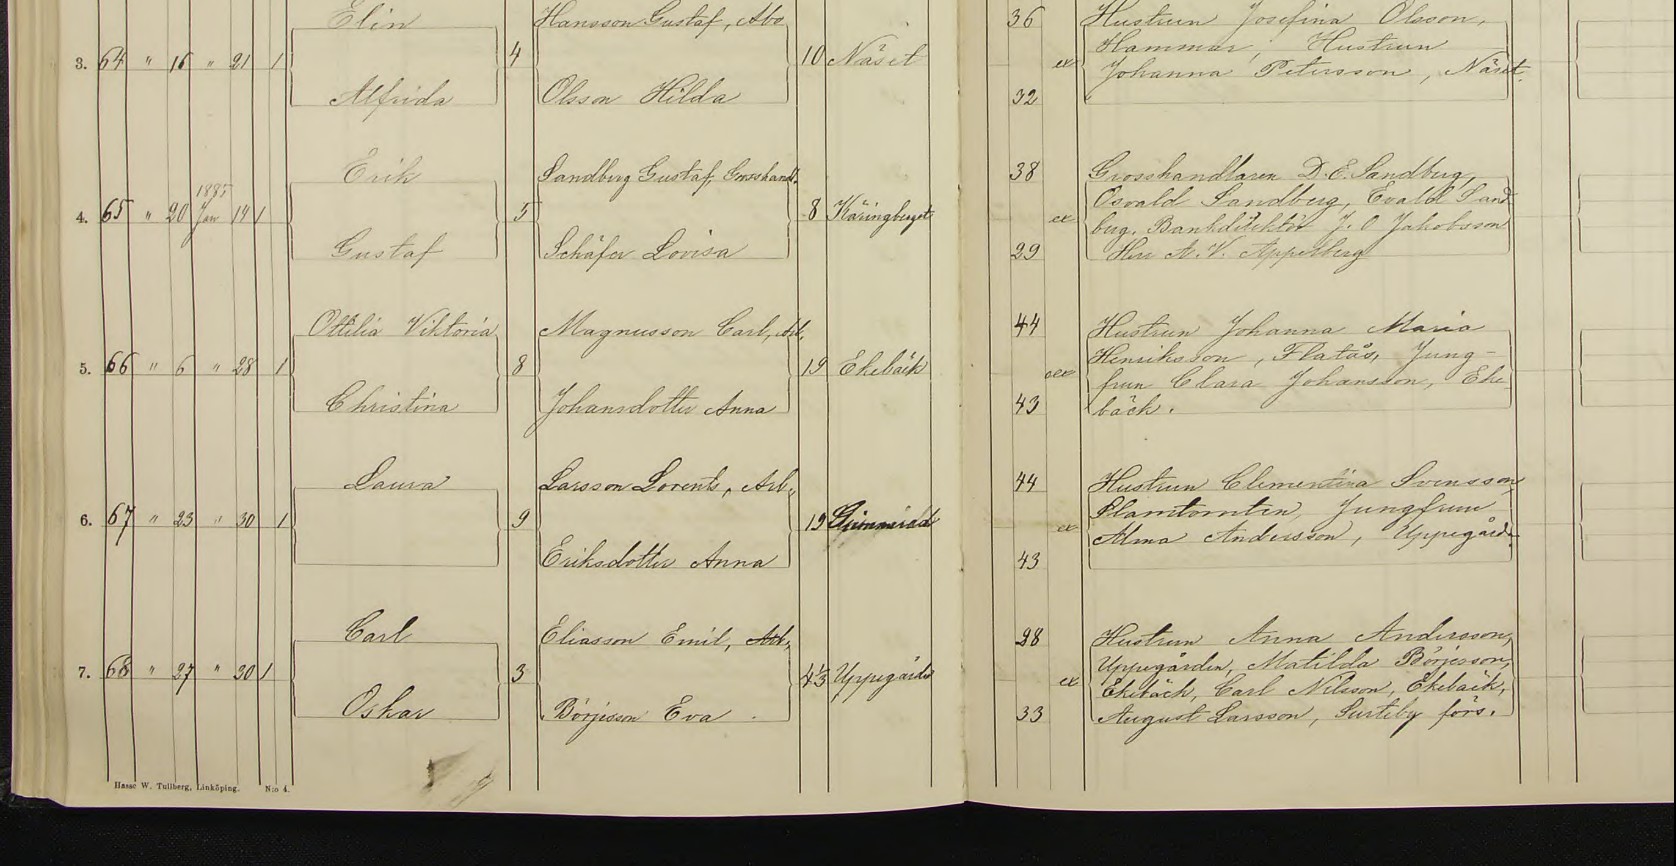 Elin Hansson Gustaf, Åbo 36 Hustrun Josefina Olsson,
Hammar, Hustrun
3. 64 " 16 " 21 1 4 10 Näset ex
Johanna Petersson, Näset.
Alfrida Olsson Hilda 32
Erik Sandberg Gustaf, Grosshandl. 38 Grosshandlaren D. E. Sandberg,
1885
Osvald Sandberg, Evald Sand
4. 65 " 20 Jan 14 1 5 8 Käringberget ex
berg. Bankdirektör J. O Jakobsson
Gustaf Schäfer Lovisa 29 Herr A. V. Appelberg
Ottilia Viktoria Magnusson Carl, Arb. 44 Hustrun Johanna Maria
Henriksson, Flatås, Jung-
5. 66 " 6 " 28 1 8 19 Ekebäck
frun Clara Johansson, Eke
Christina Johansdotter Anna 43 bäck.
Laura Larsson Lorents, Arb. 44 Hustrun Clementina Svensson
Jungfrun
6. 67 " 23 " 30 1 9 19 ex
Alma Andersson, Uppegård.
Eriksdotter Anna 43
Carl Eliasson Emil, Arb. 28 Hustrun Anna Andersson,
Uppegården, Matilda Börjesson,
7. 68 " 27 " 30 1 3 Uppegården ex
Ekebäck, Carl Nilsson, Ekebäck,
Oskar Börjesson Eva 33 August Larsson, förs.
Hasse W. Tullberg, Linköping. N:o 4.